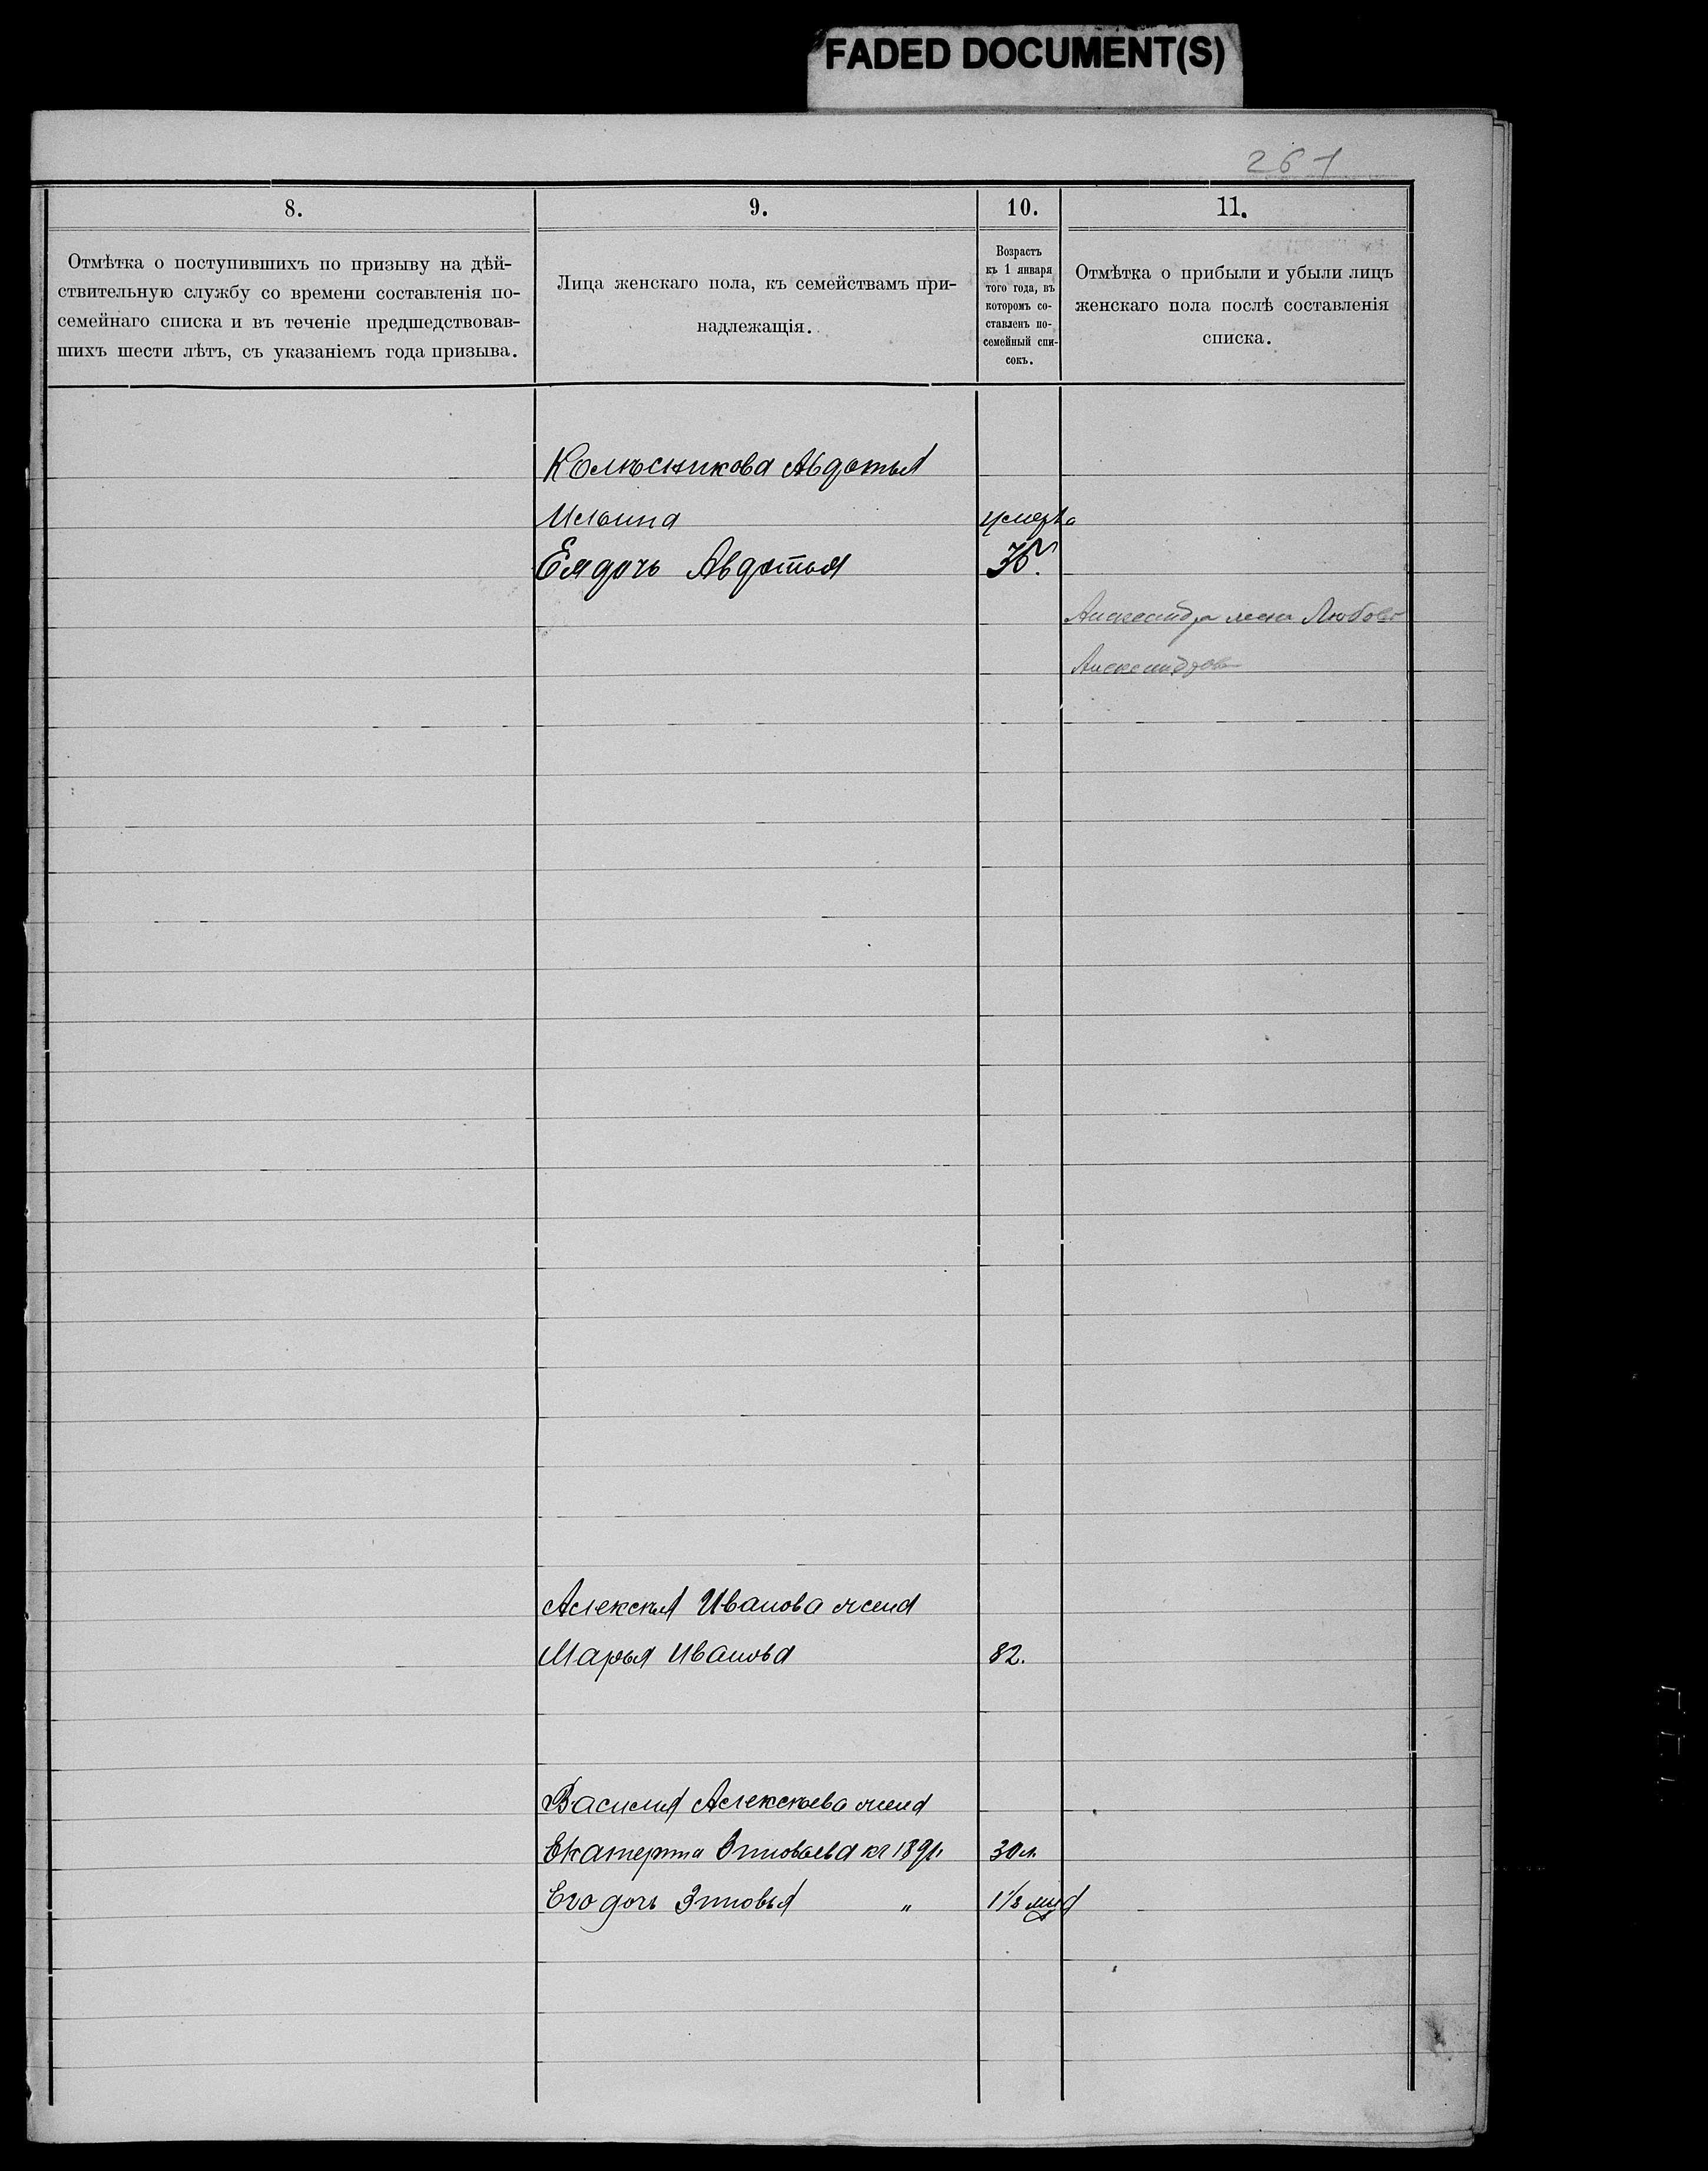 FADED DOCUMENT(S)
261
8.
Отмѣтка о поступившихъ по призыву на дѣй-
ствительную службу со времени составленія по-
семейнаго списка и въ теченіе предшедствовав-
шихъ шести лѣтъ, съ указаніемъ года призыва.
9.
Лица женскаго пола, къ семействамъ при-
надлежащія.
10.
Возрастъ
къ 1 января
того года, въ
которомъ со-
ставленъ по-
семейный спи-
сокъ.
11.
Отмѣтка о прибыли и убыли лицъ
женскаго пола послѣ составленія
списка.
Колѣсникова Авдотья
Ильина умерла
Ея дочь Авдотья
Александра жена Любовь
Александрова
Алексѣя Иванова жена
Марья Иванова 82.
Василия Алексѣева жена
Екатерина Зиновьева къ 1891. 30 л.
Его дочь Зиновья " 1 1/2